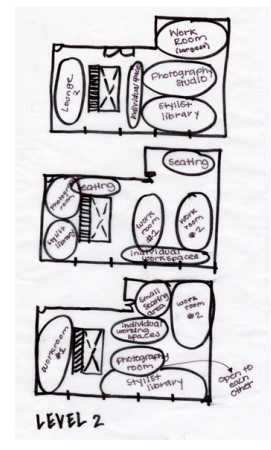 Work
Room
(largest)
Lounge
2
individual space
Photography
Studio
Stylist
library
Seating
Photography
room
Seating
Stylist
library
Work
room
#2
Work
room
#2
individual
workspaces
Small
Seating
area
Work
room
#2
individual
working
spaces
Workroom
#1
Photography
room
Stylist
library
open to
each
other
LEVEL 2